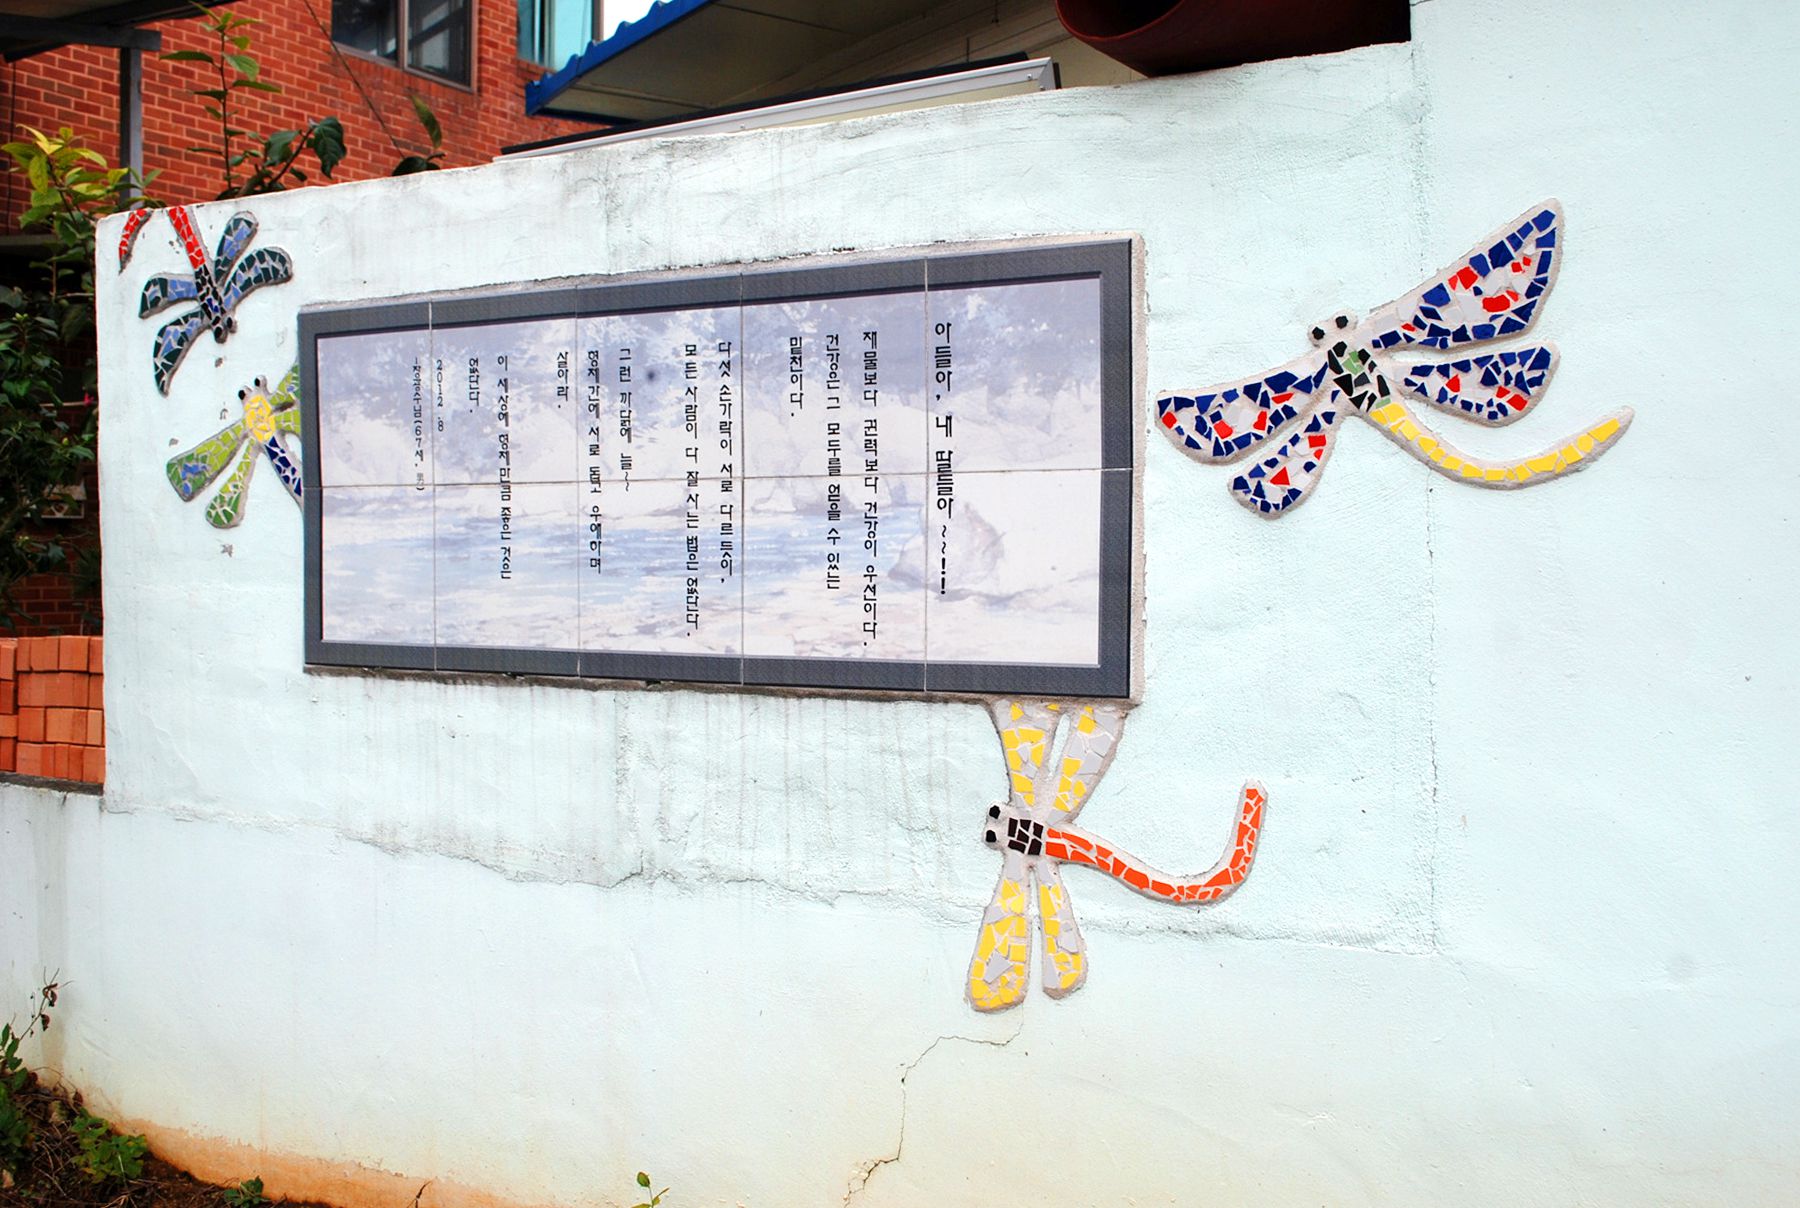 아들아, 내 딸들아~~!!
재물보다 권력보다 건강이 우선이다.
건강은 그 모두를 얻을 수 있는
밑천이다.
다섯 손가락이 서로 다르듯이,
모든 사람이 다 잘 사는 법은 없단다.
그런 까닭에 늘~~
형제간에 서로 돕고 우애하며
살아라.
이 세상에 형제만큼 좋은 것은
없단다.
2012. 8
(67세, 男)